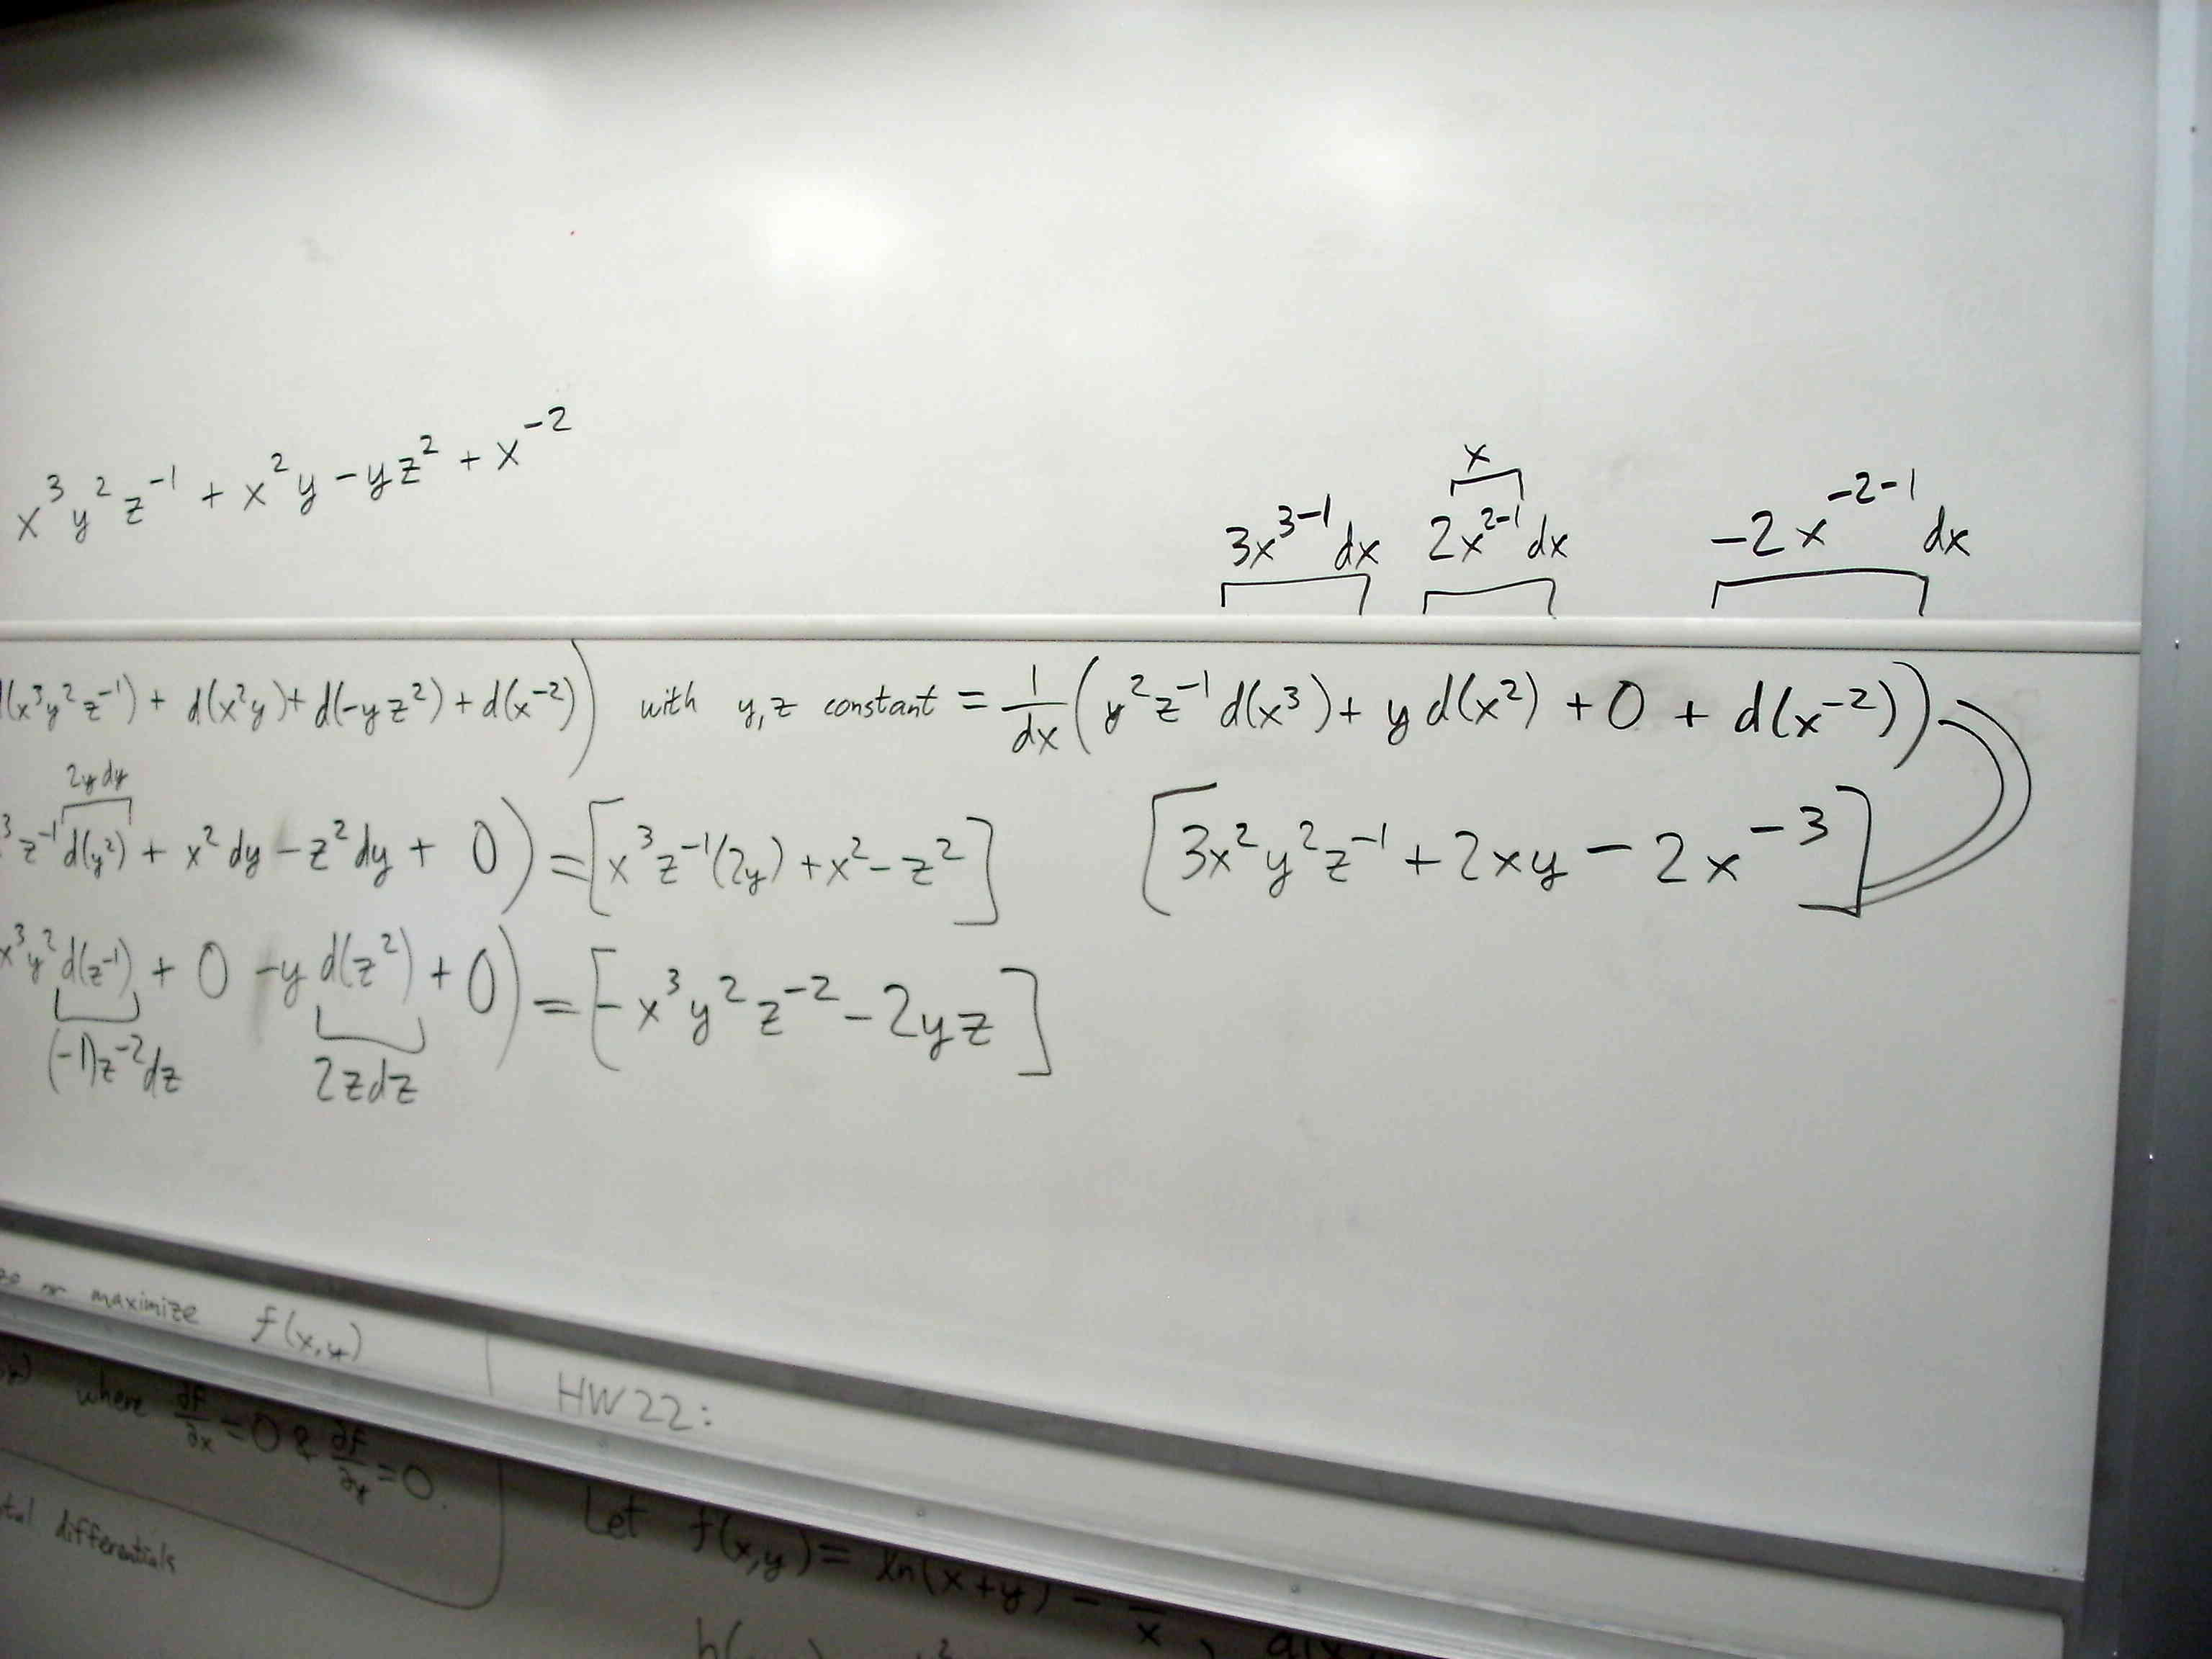 x³y²z⁻¹ + x²y - yz² + x⁻²
x
3x³⁻¹dx 2x²⁻¹dx -2x⁻²⁻¹dx
d(x³y²z⁻¹) + d(x²y) + d(-yz²) + d(x⁻²)) with y,z constant = 1/dx (y²z⁻¹d(x³) + yd(x²) + 0 + d(x⁻²))
2y dy
³z⁻¹d(y²) + x²dy - z²dy + 0) = [x³z⁻¹(2y) + x² - z²] [3x²y²z⁻¹ + 2xy - 2x⁻³]
x³y²d(z⁻¹) + 0 - yd(z²) + 0) = [-x³y²z⁻² - 2yz]
(-1)z⁻²dz 2zdz
maximize f(x,y)
HW22:
where ∂f/∂x = 0 & ∂f/∂y = 0.
differentials
Let f(x,y) = ln(x+y) -